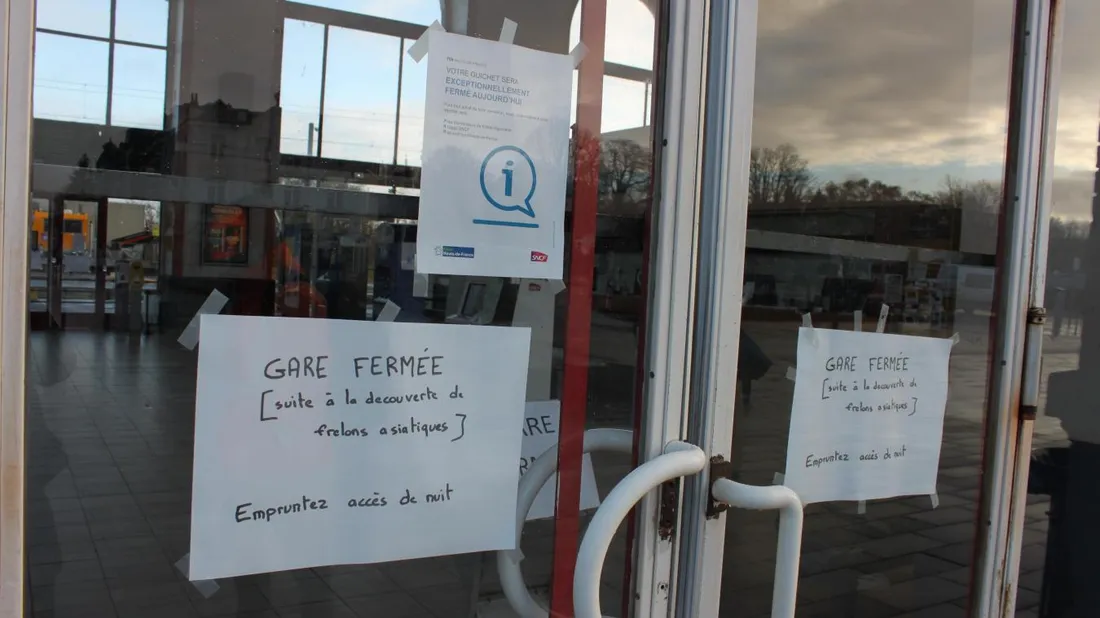 VOTRE GUICHET SERA
EXCEPTIONNELLEMENT
FERMÉ AUJOURD'HUI
i
Hauts-de-France
SNCF
GARE FERMÉE
[suite à la decouverte de
frelons asiatiques]
Empruntez accès de nuit
GARE FERMÉE
[suite à la decouverte de
frelons asiatiques]
Empruntez accès de nuit